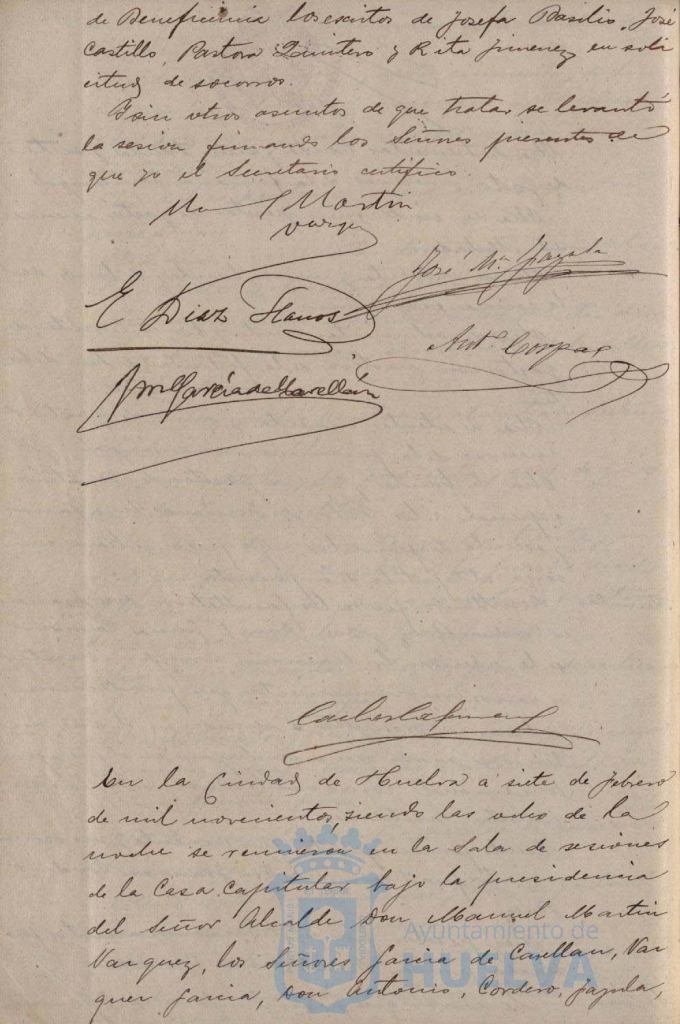 de Beneficencia los escritos de Josefa Basilio, José
Castillo, Pastora Quintero y Rita Jimenez en soli
citud de socorros.
Y sin otros asuntos de que tratar se levantó
la sesion firmando los Señores presentes de
que yo el Secretario certifico.
Ml Martin
Vazquez
José Mª Jazula
E Diaz Llanos
Antº Corpas
Jm Garcia de Carellán
En la Ciudad de Huelva a siete de febrero
de mil novecientos, siendo las ocho de la
noche se reunieron en la Sala de sesiones
de la Casa Capitular bajo la presidencia
del Señor Alcalde Don Manuel Martin
Vazquez, los Señores Garcia de Carellan, Vaz
quez Garcia, Don Antonio, Cordero, Jazula,
Ayuntamiento de
HUELVA